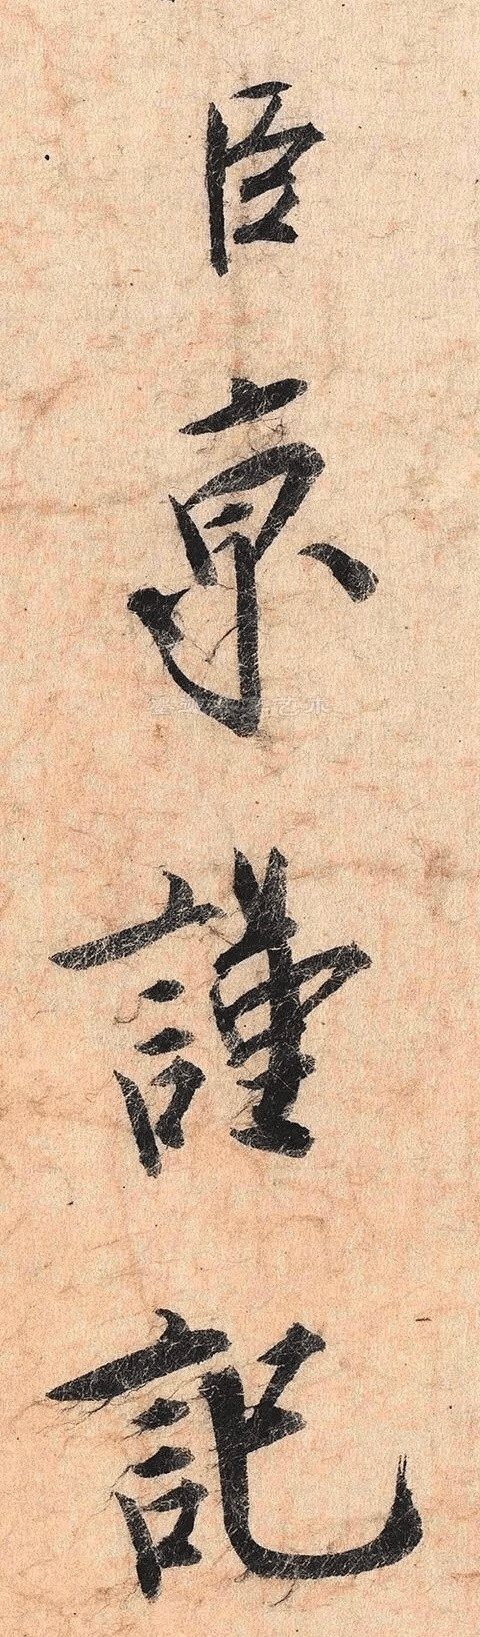 臣京謹記